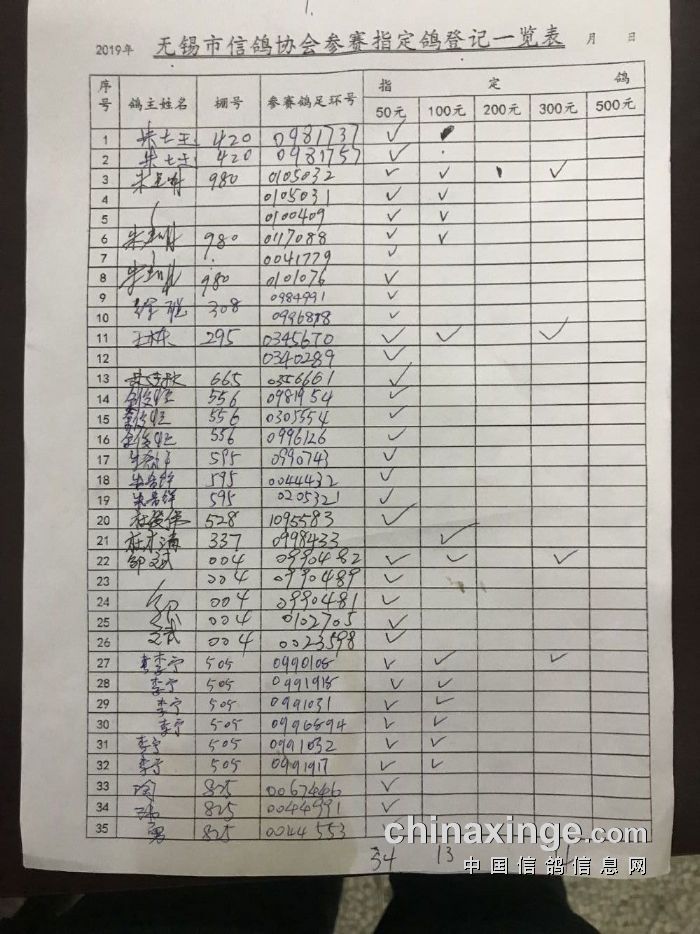 1.
2019年 无锡市信鸽协会参赛指定鸽登记一览表 月 日
序号 鸽主姓名 棚号 参赛鸽足环号 指 定 鸽
50元 100元 200元 300元 500元
1 420 0981737 ✓
2 420 0981757 ✓
3 980 0105032 ✓ ✓ ✓
4 0105031 ✓ ✓
5 0100409 ✓ ✓
6 980 0117088 ✓ ✓
7 0041779 ✓
8 980 0101076 ✓
9 308 0984991 ✓
10 ✓
11 295 0345670 ✓ ✓ ✓
12 0340289 ✓
13 665 0356661 ✓
14 556 0981954 ✓
15 556 0305554 ✓
16 556 0996126 ✓
17 595 0990743 ✓
18 595 0044432 ✓
19 595 0205321 ✓
20 528 1095583 ✓
21 337 0998433 ✓
22 邹文斌 004 0990482 ✓ ✓ ✓
23 004 0990489 ✓
24 004 0990481 ✓
25 004 0102705 ✓
26 004 0023598 ✓
27 李宁 505 0990108 ✓ ✓ ✓
28 李宁 505 0991918 ✓ ✓
29 李宁 505 0991031 ✓ ✓
30 李宁 505 0996894 ✓ ✓
31 李宁 505 0991032 ✓ ✓
32 李宁 505 0991917 ✓ ✓
33 陶 825 0067446 ✓
34 825 0044991 ✓
35 勇 825 0044553 ✓
34 13
chinaxinge.com
中国信鸽信息网